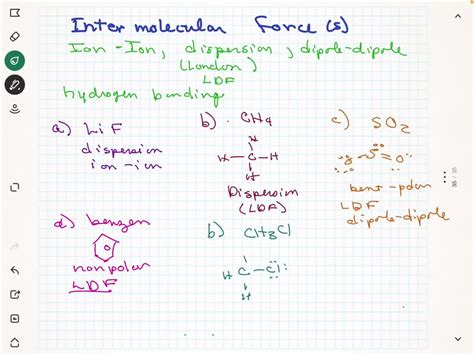 Inter molecular Force(s)
Ion-Ion, dispersion, dipole-dipole
(London)
LDF
Hydrogen bonding
a) LiF
dispersion
ion-ion
b) . CH4
H
H-C-H
H
Dispersion
(LDF)
c) SO2
:O-S=O:
bent-polar
LDF
dipole-dipole
d) benzen
nonpolar
LDF
b) CH3Cl
H-C-Cl:
H